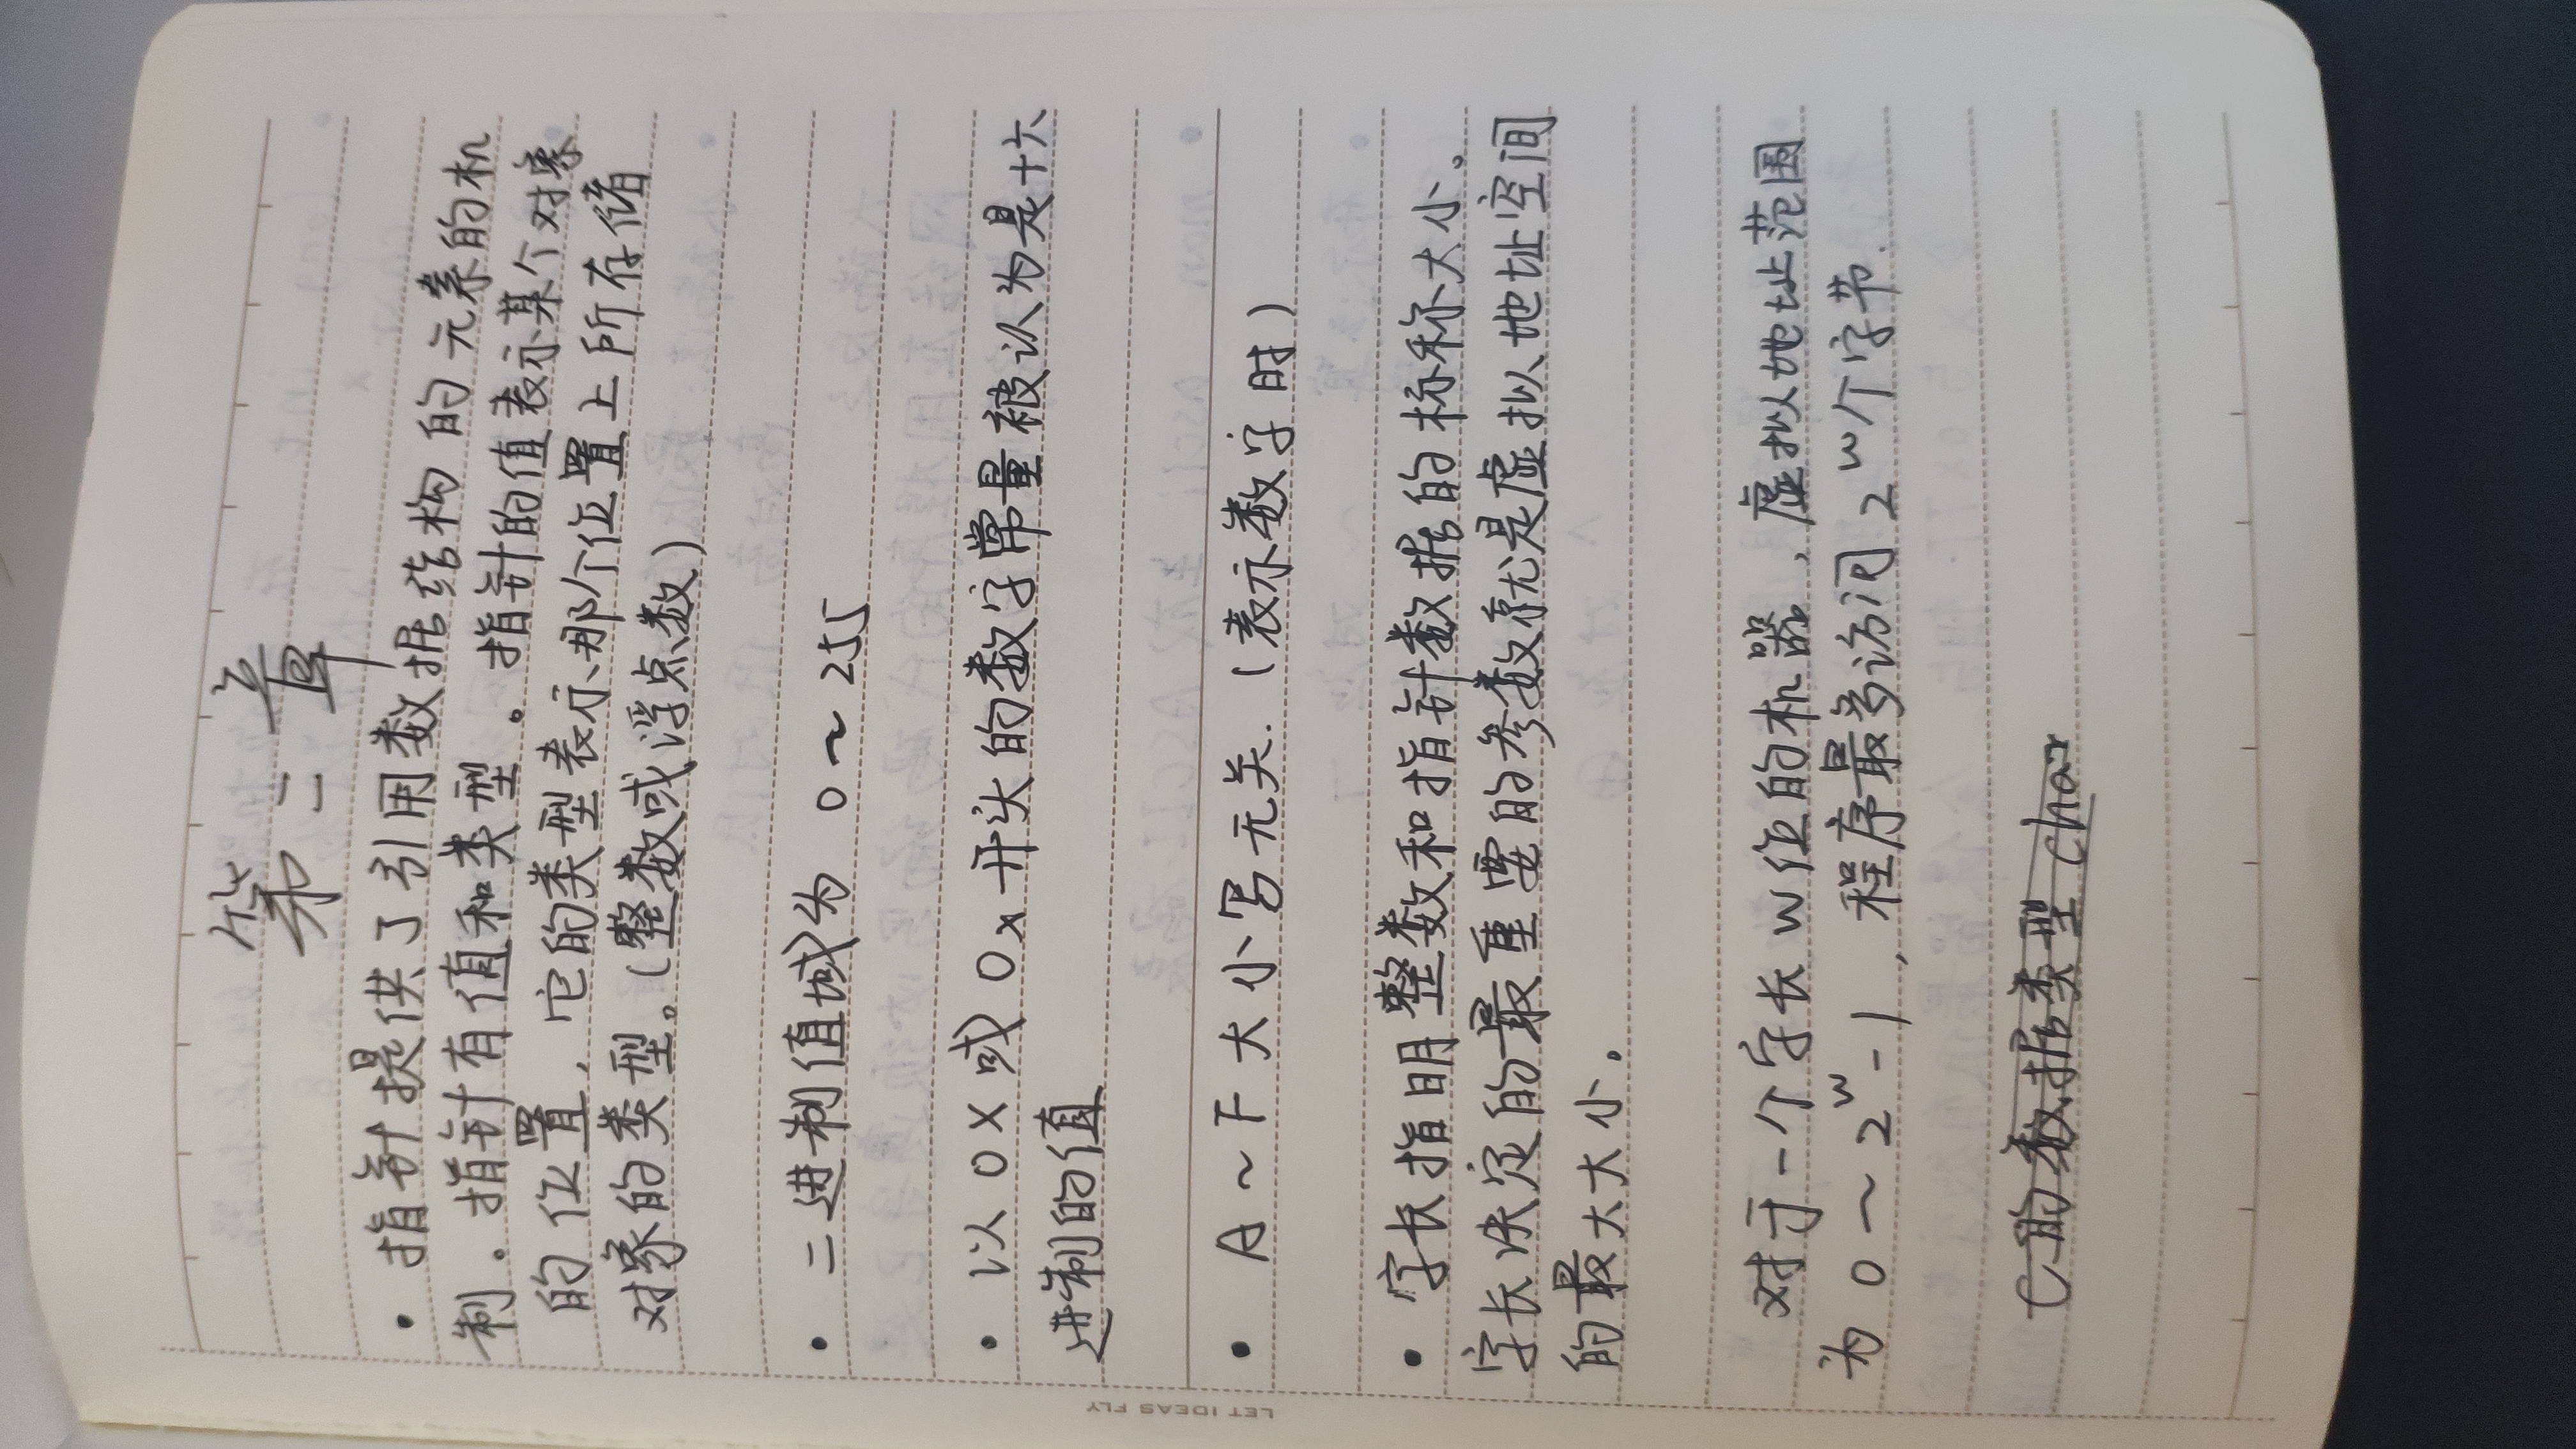 第二章
• 指针提供了引用数据结构的元素的机
制. 指针有值和类型。指针的值表示某个对象
的位置, 它的类型表示那个位置上所存储
对象的类型。(整数或浮点数)
• 二进制值域为 0~255
• 以 0X 或 0x 开头的数字常量被认为是十六
进制的值
• A~F 大小写无关. (表示数字时)
• 字长指明整数和指针数据的标称大小。
字长决定的最重要的参数就是虚拟地址空间
的最大大小.
对于一个字长w位的机器, 虚拟地址范围
为 0~2^w-1, 程序最多访问 2^w个字节.
C的数据类型 char
LET IDEAS FLY